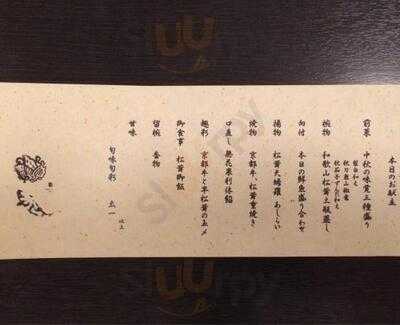 本日のお献立
前菜 中秋の味覚三種盛り
椀物 和歌山松茸土瓶蒸し
向付 本日の鮮魚盛り合わせ
揚物 松茸天婦羅 あしらい
焼物 京都牛、松茸重焼き
口直し 無花果利休餡
趣彩 京都牛と早松茸の玉〆
御食事 松茸御飯
留椀 香物
甘味
旬味旬彩 太一
以上